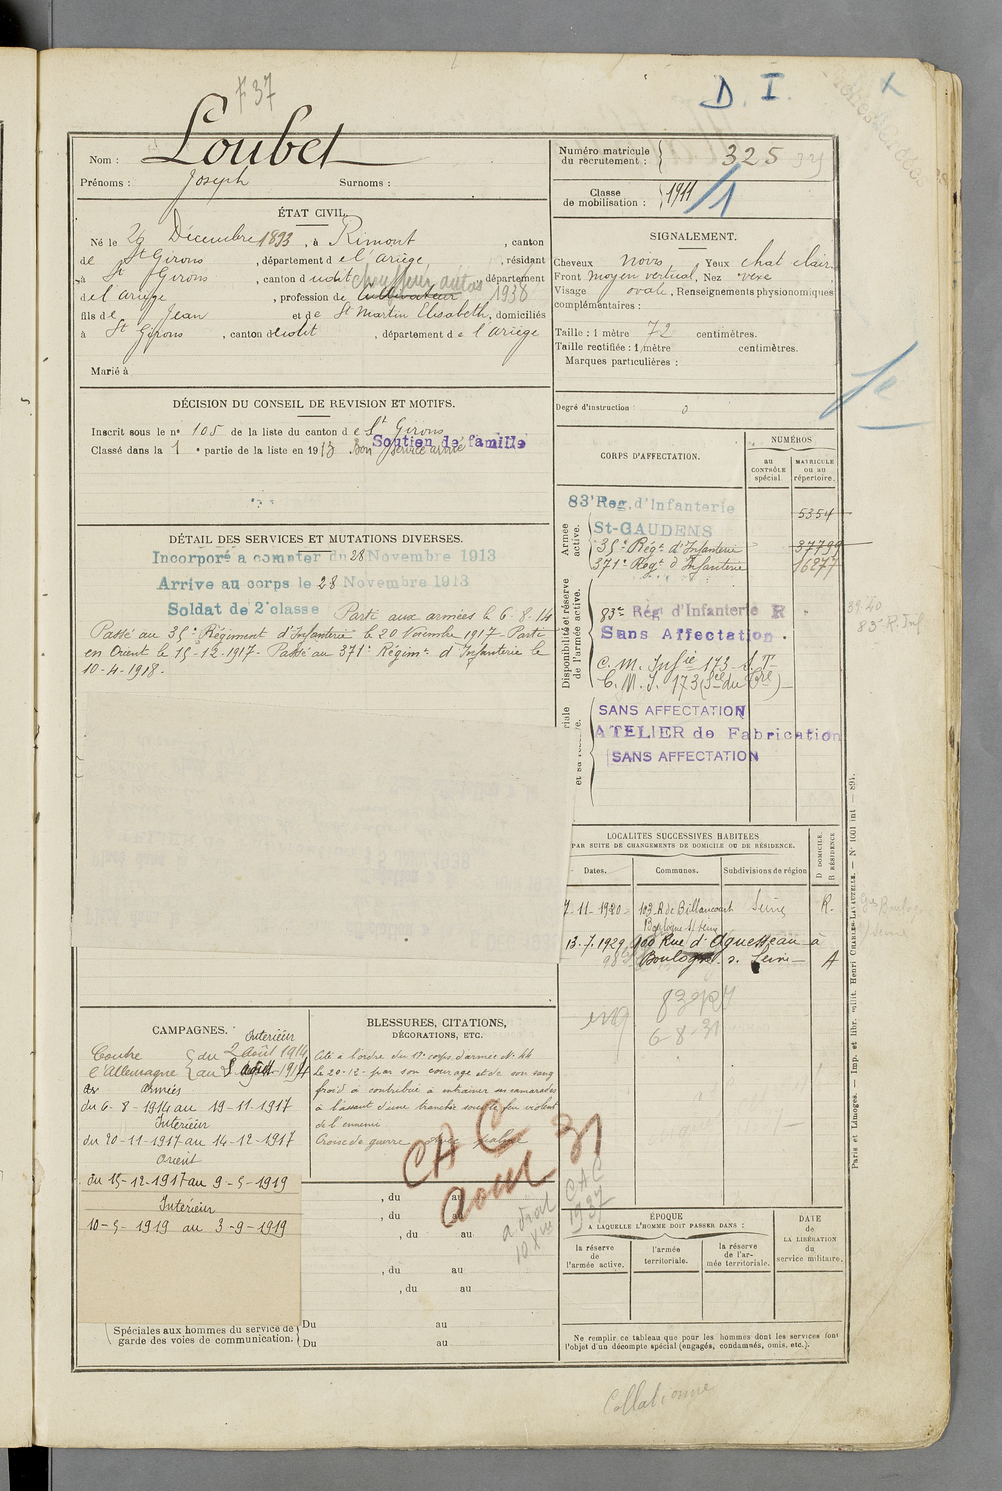 F 37
D I
Nom : Loubet
Prénoms : Joseph Surnoms :
Numéro matricule du recrutement : 325
Classe de mobilisation : 1911 /1
ÉTAT CIVIL.
Né le 26 Décembre 1893, à Rimont, canton
de St Girons, département de l'ariège, résidant
à St Girons, canton dudit chauffeur autos, département
de l'ariège, profession de Cultivateur 1938
fils de Jean et de St Martin Elisabeth, domiciliés
à St Girons, canton dudit, département de l'ariège
Marié à
SIGNALEMENT.
Cheveux noirs, Yeux chat clair,
Front moyen vertical, Nez vexe
Visage ovale, Renseignements physionomiques
complémentaires :
Taille : 1 mètre 72 centimètres.
Taille rectifiée : 1 mètre centimètres.
Marques particulières :
Degré d'instruction : 0
DÉCISION DU CONSEIL DE REVISION ET MOTIFS.
Inscrit sous le nº 105 de la liste du canton de St Girons
Classé dans la 1e partie de la liste en 1913 Bon service armé
Soutien de famille
DÉTAIL DES SERVICES ET MUTATIONS DIVERSES.
Incorporé a compter du 28 Novembre 1913
Arrive au corps le 28 Novembre 1913
Soldat de 2e classe Parti aux armées le 6-8-14
Passé au 35e Régiment d'Infanterie le 20 Novembre 1917- Parti
en Orient le 15-12-1917- Passé au 371e Régimt d'Infanterie le
10-4-1918.
CORPS D'AFFECTATION.
NUMÉROS
au CONTRÔLE spécial.
MATRICULE OU AU répertoire.
Armée active.
83e Reg. d'Infanterie 5354
St-GAUDENS
35e Régt d'Infanterie 37799
371e Régt d'Infanterie 16277
Disponibilité et réserve de l'armée active.
83e Rég d'Infanterie R
Sans Affectation.
C. M. Infie 173 S. T.
C. M. I. 173
39.40
83e R. Inf
SANS AFFECTATION
ATELIER de Fabrication
SANS AFFECTATION
LOCALITÉS SUCCESSIVES HABITÉES
PAR SUITE DE CHANGEMENTS DE DOMICILE OU DE RÉSIDENCE.
Dates. Communes. Subdivisions de région D DOMICILE. R RÉSIDENCE
7-11-1920 103 R de Billancourt Seine R.
Boulogne s/ Seine
13-7-1929 100 Rue d'Aguesseau à
Boulogne s. Seine A
6-8-31
CAMPAGNES.
Contre l'Allemagne
Intérieur
du 2 Août 1914
au 5 août 1914
aux armées
du 6-8-1914 au 19-11-1917
Intérieur
du 20-11-1917 au 14-12-1917
Orient
du 15-12-1917 au 9-5-1919
Intérieur
10-5-1919 au 3-9-1919
BLESSURES, CITATIONS,
DÉCORATIONS, ETC.
Cité à l'ordre du 17e corps d'armée No 44
le 20-12- par son courage et de son sang
froid à contribué à entrainer ses camarades
à l'assaut d'une tranchée sous le feu violent
de l'ennemi
Croix de guerre
CAC
Aout 31
CAC
1937
a droit
, du au
, du au
, du au
, du au
, du au
Spéciales aux hommes du service de garde des voies de communication.
Du au
Du au
ÉPOQUE
A LAQUELLE L'HOMME DOIT PASSER DANS :
la réserve de l'armée active.
l'armée territoriale.
la réserve de l'armée territoriale.
DATE de LA LIBÉRATION du service militaire.
Ne remplir ce tableau que pour les hommes dont les services font
l'objet d'un décompte spécial (engagés, condamnés, omis, etc.).
Paris et Limoges. — Imp. et libr. milit. Henri CHARLES-LAVAUZELLE. — Nº 1001 int — 891.
Collationné